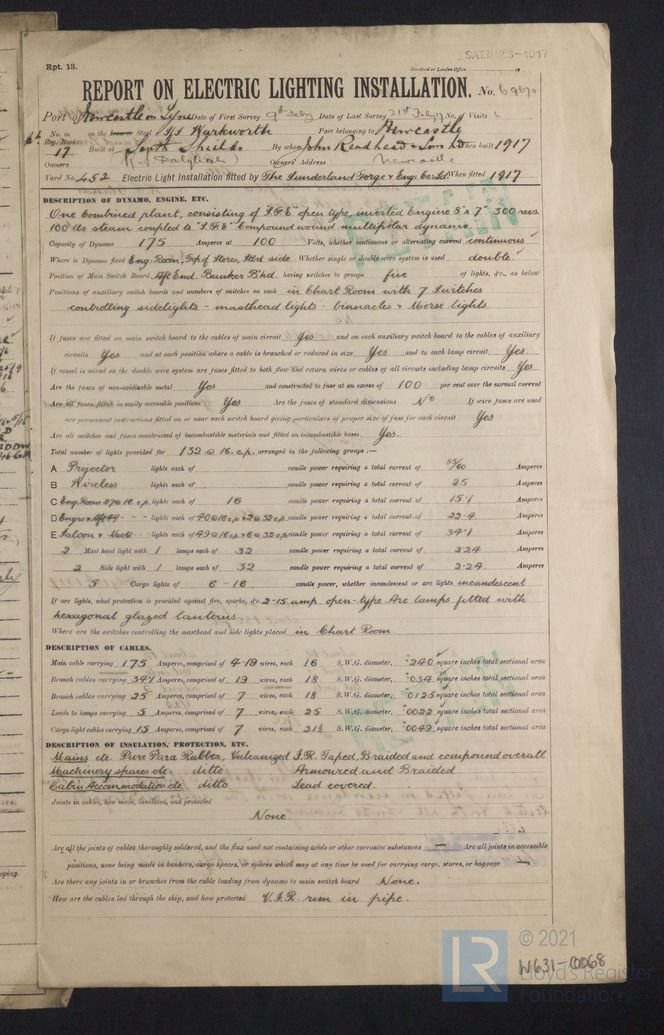 Rpt. 13.
SAT. MAR. 3-1917
Received at London Office
REPORT ON ELECTRIC LIGHTING INSTALLATION. No. 69670
Port of Newcastle on Tyne Date of First Survey 9th Feby Date of Last Survey 21st Feby 17 No. of Visits 6
No. in Reg. Book on the Iron or Steel S/S Warkworth Port belonging to Newcastle
17 Built at South Shields By whom John Readhead & Sons Ld When built 1917
Owners R. S. Dalgliesh Owners' Address Newcastle
Yard No. 452 Electric Light Installation fitted by The Sunderland Forge & Eng. Co. Ltd When fitted 1917
DESCRIPTION OF DYNAMO, ENGINE, ETC.
One Combined plant, consisting of "S.F.E" open type, inverted Engine 8" x 7" 300 revs
100 lbs steam coupled to "S.F.E" Compound wound multipolar dynamo.
Capacity of Dynamo 175 Amperes at 100 Volts, whether continuous or alternating current continuous
Where is Dynamo fixed Eng. Room, Top of Stores, Stbd side Whether single or double wire system is used double
Position of Main Switch Board Aft End. Bunker B'hd. having switches to groups five of lights, &c., as below
Positions of auxiliary switch boards and numbers of switches on each in Chart Room with 7 Switches
controlling sidelights - masthead lights - binnacles & Morse lights
If fuses are fitted on main switch board to the cables of main circuit Yes and on each auxiliary switch board to the cables of auxiliary
circuits Yes and at each position where a cable is branched or reduced in size Yes and to each lamp circuit Yes
If vessel is wired on the double wire system are fuses fitted to both flow and return wires or cables of all circuits including lamp circuits Yes
Are the fuses of non-oxidizable metal Yes and constructed to fuse at an excess of 100 per cent over the normal current
Are all fuses fitted in easily accessible positions Yes Are the fuses of standard dimensions No If wire fuses are used
are permanent instructions fitted on or near each switch board giving particulars of proper size of fuse for each circuit Yes
Are all switches and fuses constructed of incombustible materials and fitted on incombustible bases Yes.
Total number of lights provided for 132 @ 16. c.p. arranged in the following groups :—
A Projector lights each of candle power requiring a total current of 55/60 Amperes
B Wireless lights each of candle power requiring a total current of 25 Amperes
C Eng Room 27 @ 16 c.p. lights each of 16 candle power requiring a total current of 15.1 Amperes
D Engrs & Aft 44 lights each of 40 @ 16 c.p. & 2 @ 32 c.p candle power requiring a total current of 22.4 Amperes
E Saloon & lights each of 49 @ 16 c.p & 6 @ 32 c.p candle power requiring a total current of 34.1 Amperes
2 Mast head light with 1 lamps each of 32 candle power requiring a total current of 2.24 Amperes
2 Side light with 1 lamps each of 32 candle power requiring a total current of 2.24 Amperes
5 Cargo lights of 6 - 16 candle power, whether incandescent or arc lights incandescent
If arc lights, what protection is provided against fire, sparks, &c. 2-15 amp. open-type Arc lamps fitted with
hexagonal glazed lanterns
Where are the switches controlling the masthead and side lights placed in Chart Room
DESCRIPTION OF CABLES.
Main cable carrying 175 Amperes, comprised of 4-19 wires, each 16 S.W.G. diameter, .240 square inches total sectional area
Branch cables carrying 34.1 Amperes, comprised of 19 wires, each 18 S.W.G. diameter, .034 square inches total sectional area
Branch cables carrying 25 Amperes, comprised of 7 wires, each 18 S.W.G. diameter, .0125 square inches total sectional area
Leads to lamps carrying 5 Amperes, comprised of 7 wires, each 25 S.W.G. diameter, .0022 square inches total sectional area
Cargo light cables carrying 15 Amperes, comprised of 7 wires, each 21½ S.W.G. diameter, .0049 square inches total sectional area
DESCRIPTION OF INSULATION, PROTECTION, ETC.
Mains etc Pure Para Rubber, Vulcanized I.R. Taped, Braided and compound overall
Machinery spaces etc ditto Armoured and Braided
Cabin Accommodation etc ditto Lead covered.
Joints in cables, how made, insulated, and protected
None
Are all the joints of cables thoroughly soldered, and the flux used not containing acids or other corrosive substances — Are all joints in accessible
positions, none being made in bunkers, cargo spaces, or spaces which may at any time be used for carrying cargo, stores, or baggage —
Are there any joints in or branches from the cable leading from dynamo to main switch board None.
How are the cables led through the ship, and how protected V.I.R. run in pipe.
© 2021
LR
Lloyd's Register
Foundation
W631-0068